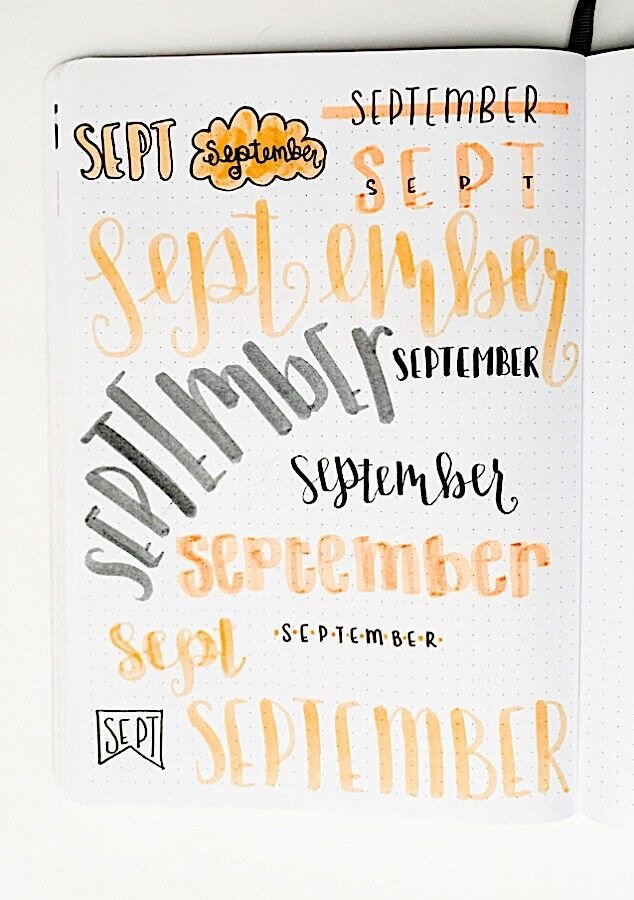 SEPT
September
SEPTEMBER
SEPT
SEPT
September
SEPTEMBER
SEPTEMBER
September
september
sept
·S·E·P·T·E·M·B·E·R·
SEPT
SEPTEMBER